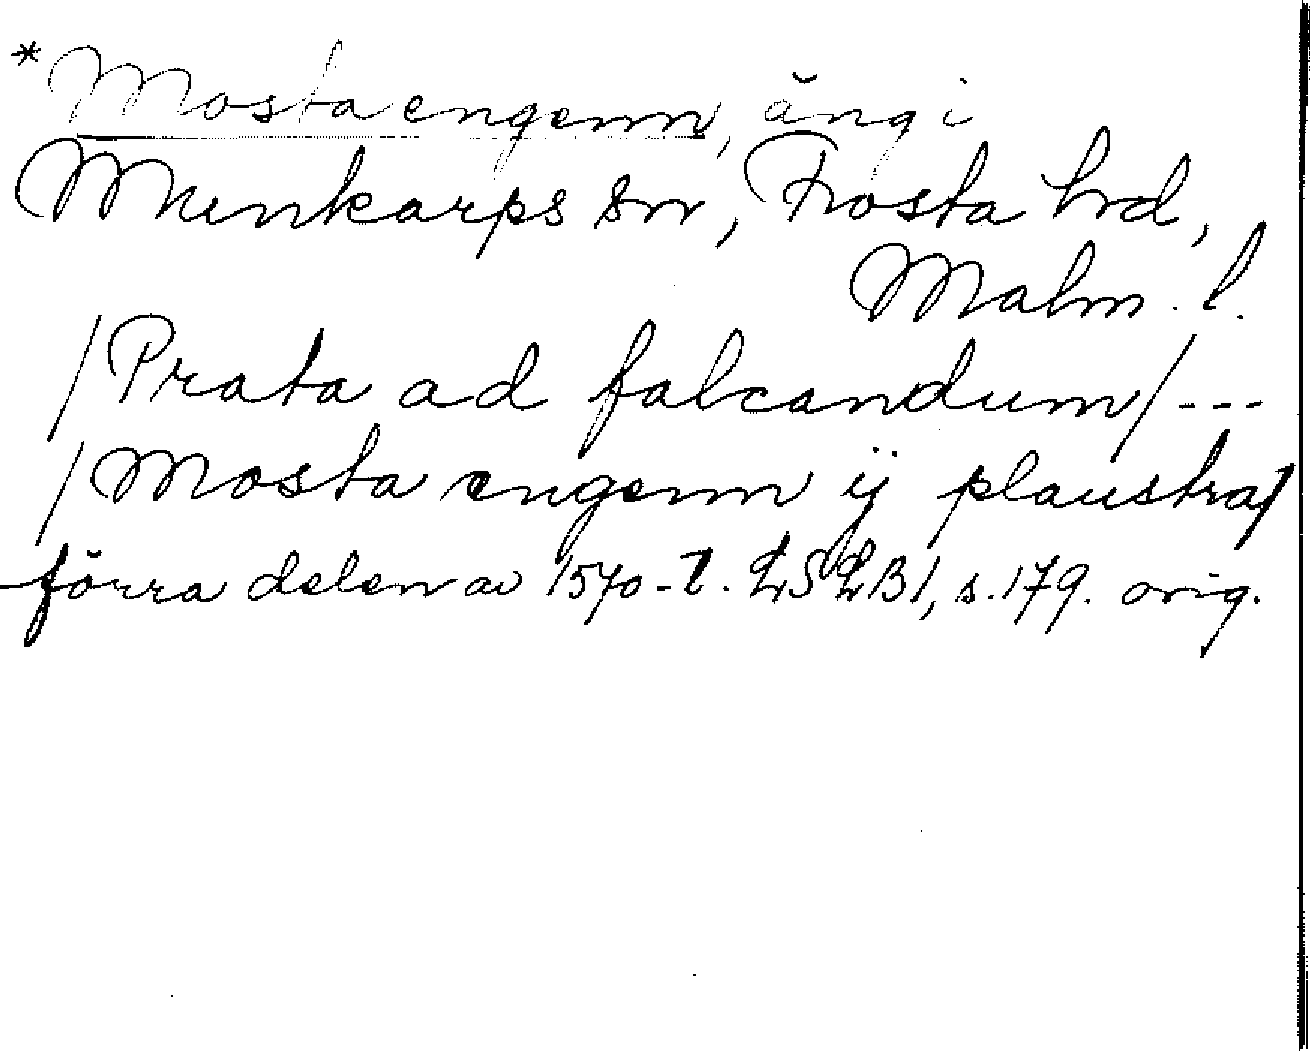 *Mosta engenn, äng i
Munkarps sn, Frosta hrd,
Malm. l.
/Prata ad falcandum/ ---
/Mosta engenn ij plaustra/
förra delen av 1540-t. LSLB1, s. 179. orig.